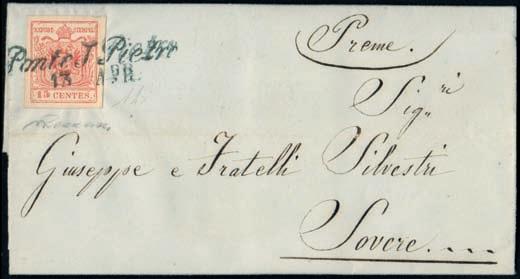 KKPOST-STEMPEL
Ponte S. Pietro
13 APR.
15 CENTES.
Preme.
Sig.ri
Giuseppe e Fratelli Silvestri
Sovere....